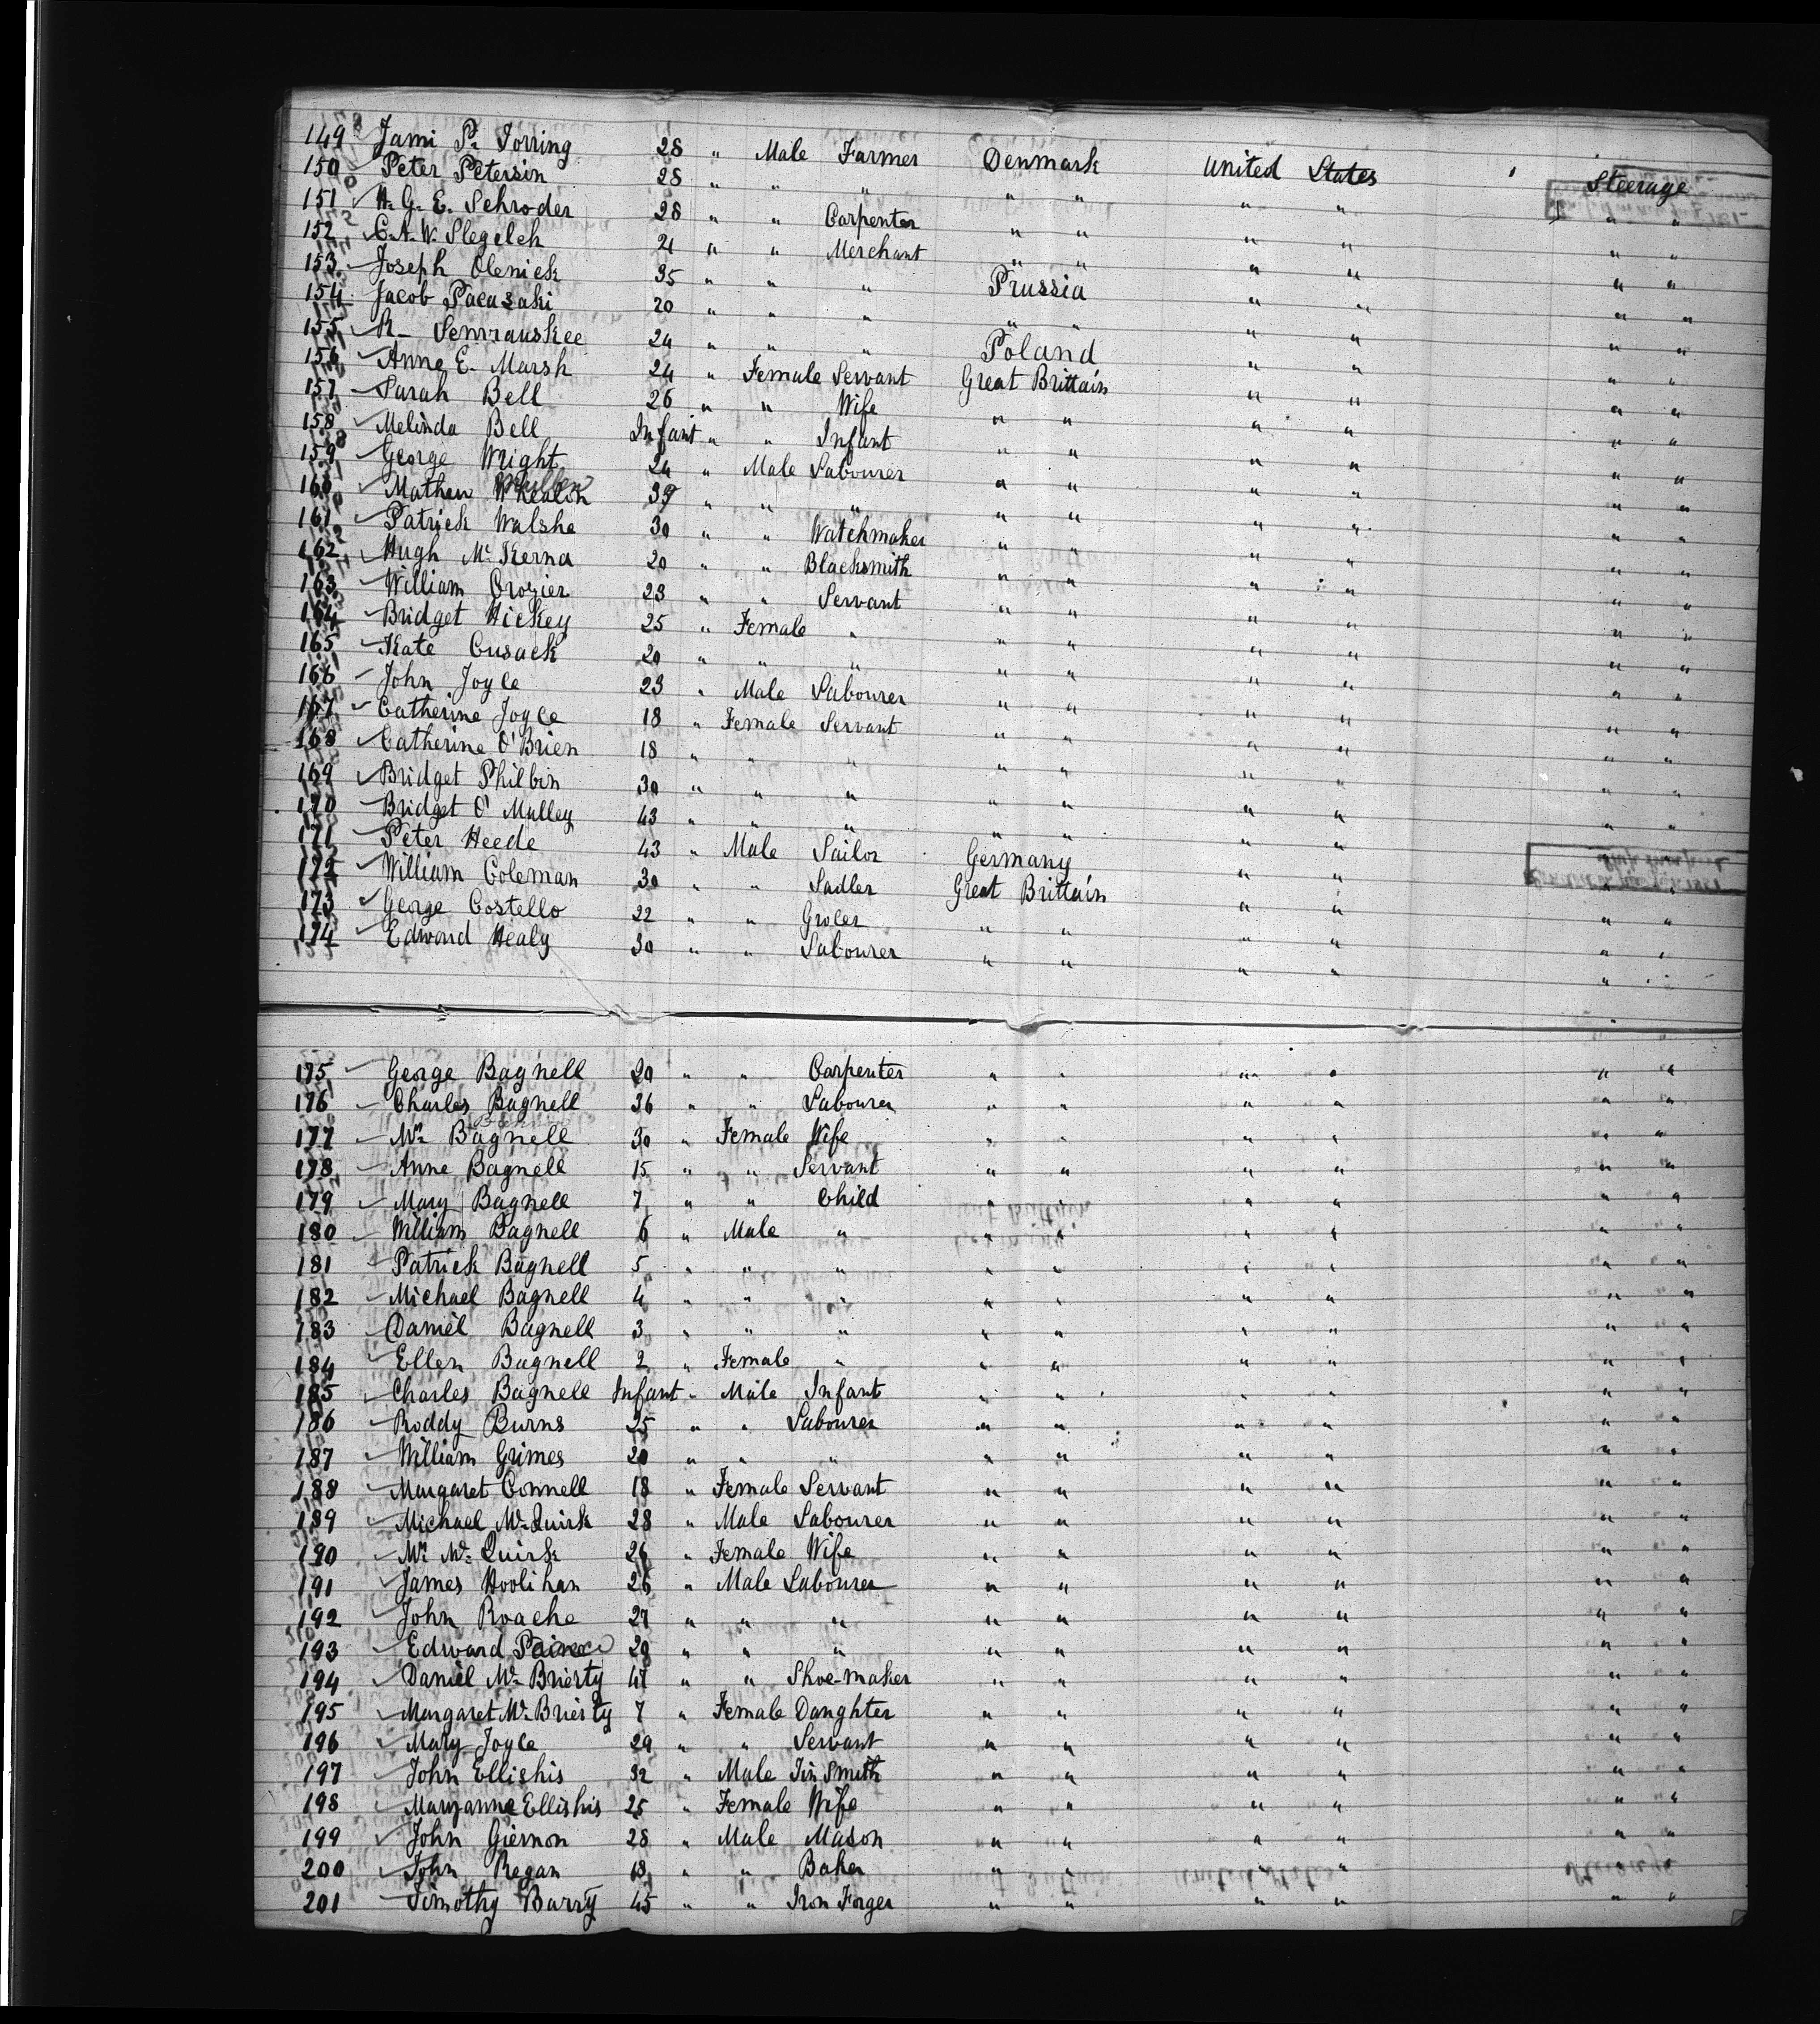 149 Jami P. Torring 28 " Male Farmer Denmark United States Steerage
150 Peter Petersin 28 " " " " " " " " "
151 H. G. E. Schroder 28 " " Carpenter " " " " " "
152 C. A. W. Slegelch 21 " " Merchant " " " " " "
153 Joseph Olenick 35 " " " Prussia " " " "
154 Jacob Pacusaki 20 " " " " " " " " "
155 R- Semrauskee 24 " " " Poland " " " "
156 Anne E. Marsh 24 " Female Servant Great Brittain " " " "
157 Sarah Bell 26 " " Wife " " " " " "
158 Melinda Bell Infant " " Infant " " " " " "
159 George Wright 24 " Male Labourer " " " " " "
160 Mathew 39 " " " " " " " " "
161 Patrick Walshe 30 " " Watchmaker " " " " " "
162 Hugh Mc Kerna 20 " " Blacksmith " " " " " "
163 William Crozier 23 " " Servant " " " " " "
164 Bridget Hickey 25 " Female " " " " " " "
165 Kate Cusack 20 " " " " " " " " "
166 John Joyce 23 " Male Labourer " " " " " "
167 Catherine Joyce 18 " Female Servant " " " " " "
168 Catherine O'Brien 18 " " " " " " " " "
169 Bridget Philbin 30 " " " " " " " " "
170 Bridget O'Malley 43 " " " " " " " " "
171 Peter Heede 43 " Male Sailor Germany " " " "
172 William Coleman 30 " " Sadler Great Brittain " " " "
173 George Costello 22 " " Grocer " " " " " "
174 Edward Healy 30 " " Labourer " " " " " "
175 George Bagnell 20 " " Carpenter " " " " " "
176 Charles Bagnell 36 " " Labourer " " " " " "
177 Mrs Bagnell 30 " Female Wife " " " " " "
178 Anne Bagnell 15 " " Servant " " " " " "
179 Mary Bagnell 7 " " Child " " " " " "
180 William Bagnell 6 " Male " " " " " " "
181 Patrick Bagnell 5 " " " " " " " " "
182 Michael Bagnell 4 " " " " " " " " "
183 Daniel Bagnell 3 " " " " " " " " "
184 Ellen Bagnell 2 " Female " " " " " " "
185 Charles Bagnell Infant " Male Infant " " " " " "
186 Roddy Burns 25 " " Labourer " " " " " "
187 William Grimes 20 " " " " " " " " "
188 Margaret Connell 18 " Female Servant " " " " " "
189 Michael Mc Quirk 28 " Male Labourer " " " " " "
190 Mrs Mc Quirk 26 " Female Wife " " " " " "
191 James Hoolihan 26 " Male Labourer " " " " " "
192 John Roache 27 " " " " " " " " "
193 Edward " " " " " " " " "
194 Daniel Mc Brierty 47 " " Shoe-maker " " " " " "
195 Margaret Mc Brierty 7 " Female Daughter " " " " " "
196 Mary Joyce 29 " " Servant " " " " " "
197 John Ellishis 32 " Male Tin Smith " " " " " "
198 Maryanne Ellishis 25 " Female Wife " " " " " "
199 John Giernon 28 " Male Mason " " " " " "
200 John Regan 18 " " Baker " " " " " "
201 Timothy Barry 45 " " Iron Forger " " " " " "